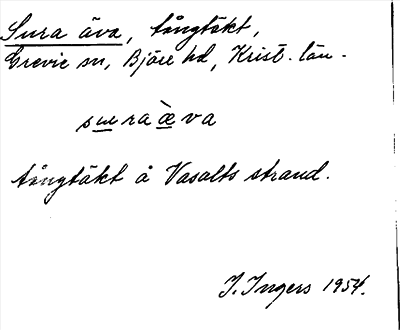 Sura äva, tångtäkt,
Grevie sn, Bjäre hd, Krist. län.
suraæ̀va
tångtäkt å Vasalts strand.
I. Ingers 1954.